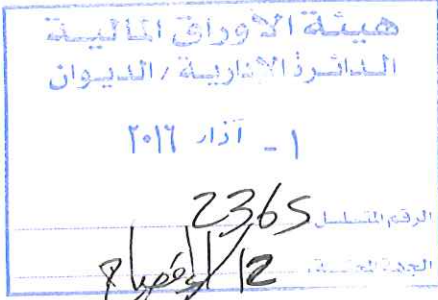 هيئة الأوراق المالية
الدائرة الإدارية / الديوان
١ - آذار ٢٠١٦
الرقم المتسلسل 2365
الجهة المختصة 12 / الإفصاح